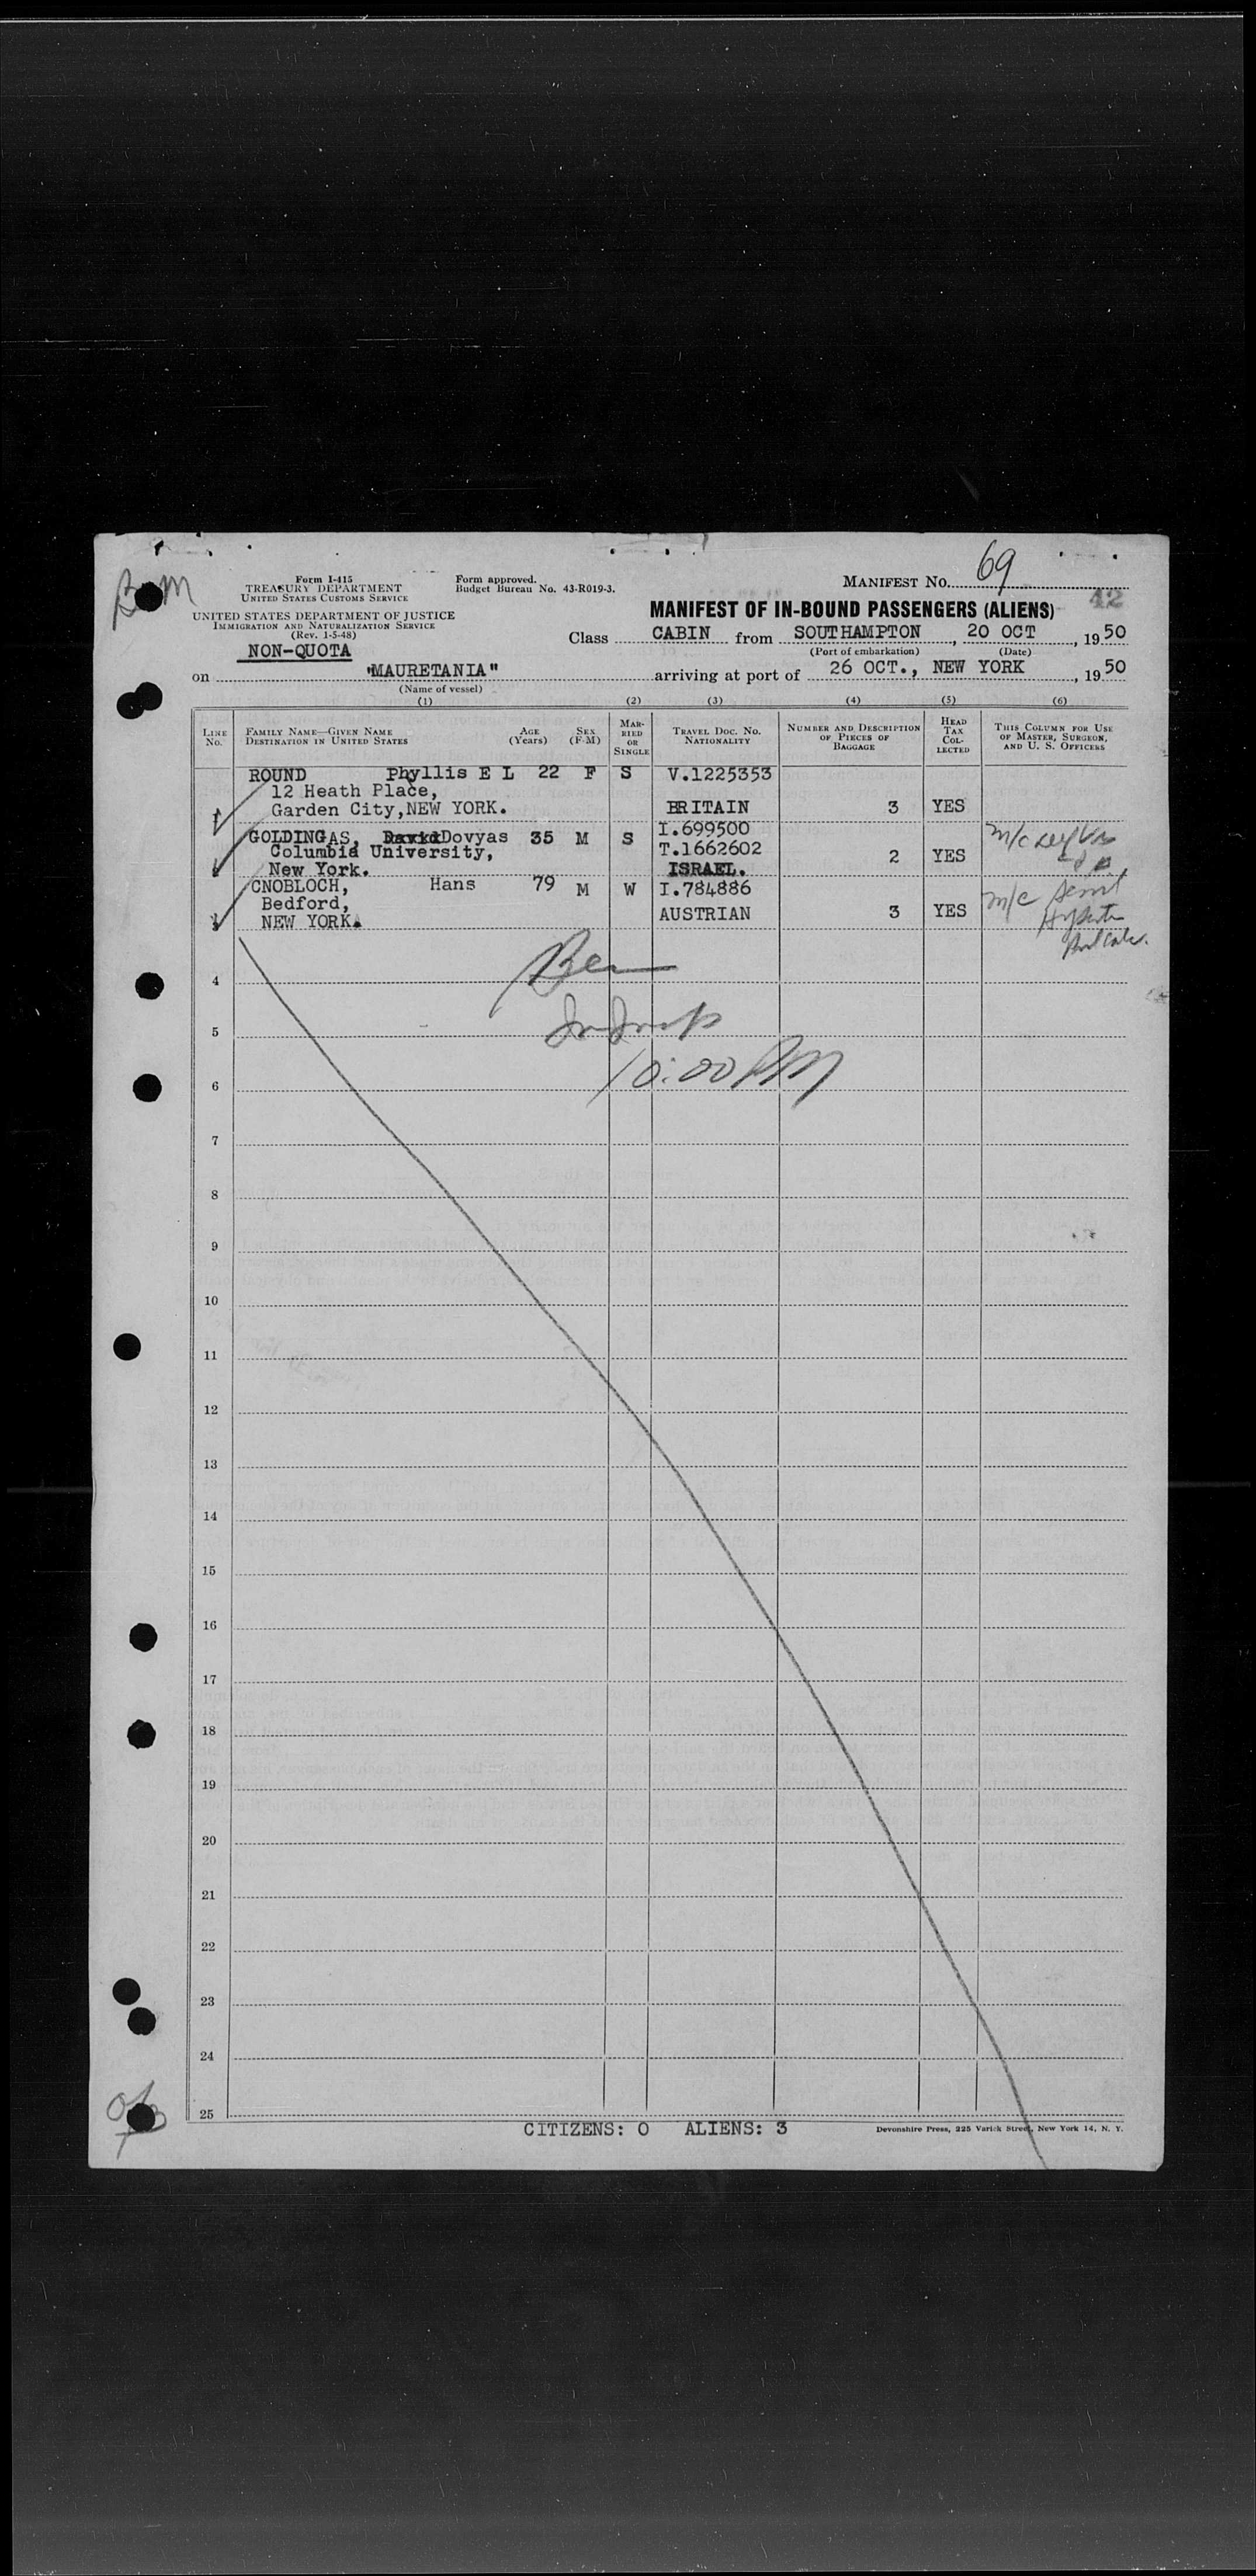 BM
Form I-415
TREASURY DEPARTMENT
UNITED STATES CUSTOMS SERVICE
Form approved.
Budget Bureau No. 43-R019-3.
MANIFEST NO. 69
42
UNITED STATES DEPARTMENT OF JUSTICE
IMMIGRATION AND NATURALIZATION SERVICE
(Rev. 1-5-48)
NON-QUOTA
MANIFEST OF IN-BOUND PASSENGERS (ALIENS)
Class CABIN from SOUTHAMPTON, 20 OCT, 1950
(Port of embarkation) (Date)
on "MAURETANIA" arriving at port of 26 OCT., NEW YORK, 1950
(Name of vessel)
(1) (2) (3) (4) (5) (6)
LINE NO. FAMILY NAME—GIVEN NAME DESTINATION IN UNITED STATES AGE (Years) SEX (F-M) MARRIED OR SINGLE TRAVEL DOC. NO. NATIONALITY NUMBER AND DESCRIPTION OF PIECES OF BAGGAGE HEAD TAX COLLECTED THIS COLUMN FOR USE OF MASTER, SURGEON, AND U. S. OFFICERS
ROUND Phyllis E L 22 F S V.1225353
12 Heath Place,
Garden City,NEW YORK. BRITAIN 3 YES
GOLDINGAS, David Dovyas 35 M S I.699500
Columbia University, T.1662602 2 YES m/c
New York. ISRAEL.
CNOBLOCH, Hans 79 M W I.784886
Bedford,
NEW YORK. AUSTRIAN 3 YES m/c
4
5
10:00 PM
6
7
8
9
10
11
12
13
14
15
16
17
18
19
20
21
22
23
24
25
CITIZENS: 0 ALIENS: 3
Devonshire Press, 225 Varick Street, New York 14, N. Y.